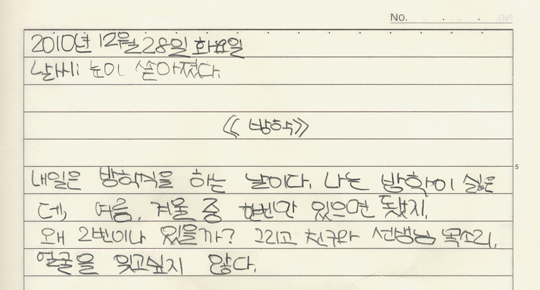 No.
2010년 12월 28일 화요일
날씨: 눈이 쏟아졌다.
《 방학 》
5
내일은 방학식을 하는 날이다. 나는 방학이 싫은
데, 여름, 겨울 중 한번만 있으면 됐지,
왜 2번이나 있을까? 그리고 친구와 선생님 목소리,
얼굴을 잊고싶지 않다.